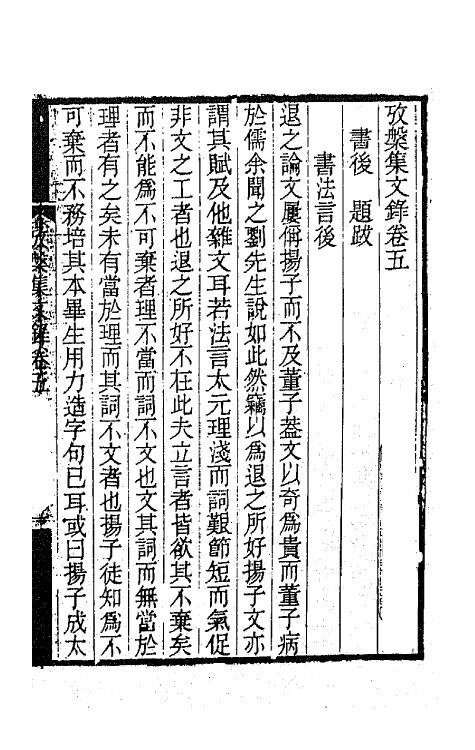 攷槃集文錄卷五
書後 題跋
書法言後
退之論文屢稱揚子而不及董子葢文以奇為貴而董子病
於儒余聞之劉先生說如此然竊以為退之所好揚子文亦
謂其賦及他雜文耳若法言太元理淺而詞艱節短而氣促
非文之工者也退之所好不在此夫立言者皆欲其不棄矣
而不能為不可棄者理不當而詞不文也文其詞而無當於
理者有之矣未有當於理而其詞不文者也揚子徒知為不
可棄而不務培其本畢生用力造字句已耳或曰揚子成太
攷槃集文錄卷五